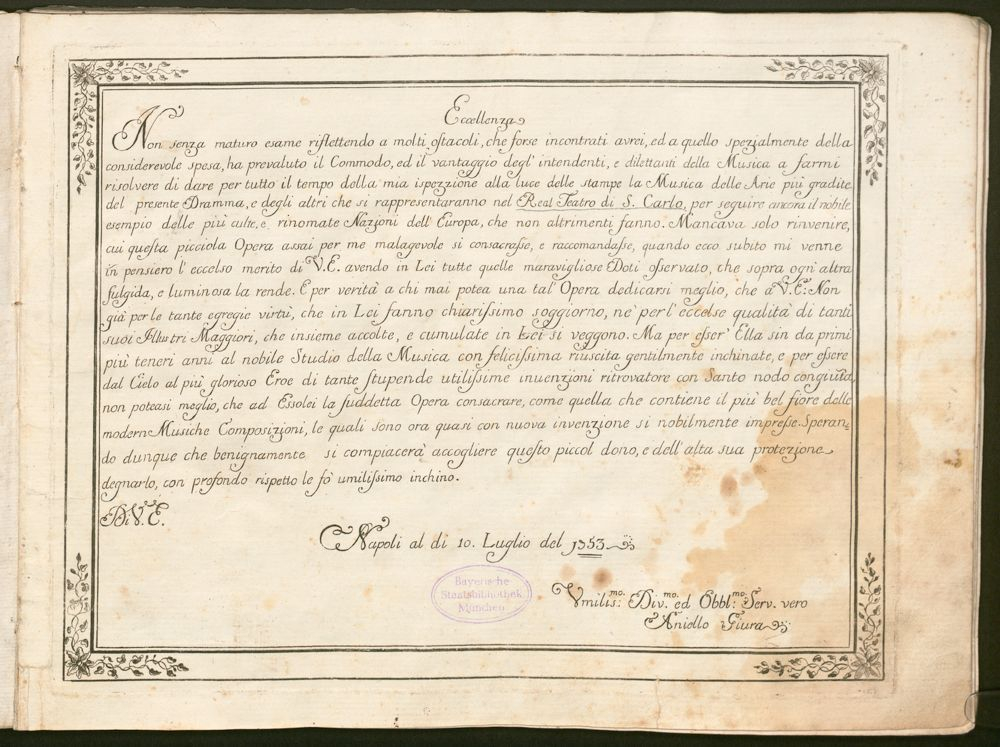 Eccellenza
Non senza maturo esame riflettendo a molti ostacoli, che forse incontrati avrei, ed a quello spezialmente della
considerevole spesa, ha prevaluto il Commodo, ed il vantaggio degl' intendenti, e dilettanti della Musica a farmi
risolvere di dare per tutto il tempo della mia ispezzione alla luce delle stampe la Musica delle Arie più gradite
del presente Dramma, e degli altri che si rappresentaranno nel Real Teatro di S. Carlo, per seguire ancora il nobile
esempio delle più culte, e rinomate Nazioni dell' Europa, che non altrimenti fanno. Mancava solo rinvenire,
cui questa picciola Opera assai per me malagevole si consacrasse, e raccomandasse, quando ecco subito mi venne
in pensiero l' eccelso merito di V.E. avendo in Lei tutte quelle maravigliose Doti osservato, che sopra ogn' altra
fulgida, e luminosa la rende. E per verità a chi mai potea una tal' Opera dedicarsi meglio, che a V.E: Non
già per le tante egregie virtù, che in Lei fanno chiarissimo soggiorno, nè per l' eccelse qualità di tanti
suoi Illustri Maggiori, che insieme accolte, e cumulate in Lei si veggono. Ma per esser' Ella sin da primi
più teneri anni al nobile Studio della Musica con felicissima riuscita gentilmente inchinate, e per essere
dal Cielo al più glorioso Eroe di tante stupende utilissime inuenzioni ritrovatore con Santo nodo congiuta,
non poteasi meglio, che ad Essolei la suddetta Opera consacrare, come quella che contiene il più bel fiore delle
modern Musiche Composizioni, le quali sono ora quasi con nuova invenzione si nobilmente impresse. Speran=
do dunque che benignamente si compiacerà accogliere questo piccol dono, e dell' alta sua protezione
degnarlo, con profondo rispetto le fò umilissimo inchino.
Di V.E.
Napoli al di 10. Luglio del 1753
Bayerische
Staatsbibliothek
München
Vmilis:mo. Div:mo. ed Obbl:mo. Serv. vero
Aniello Giura